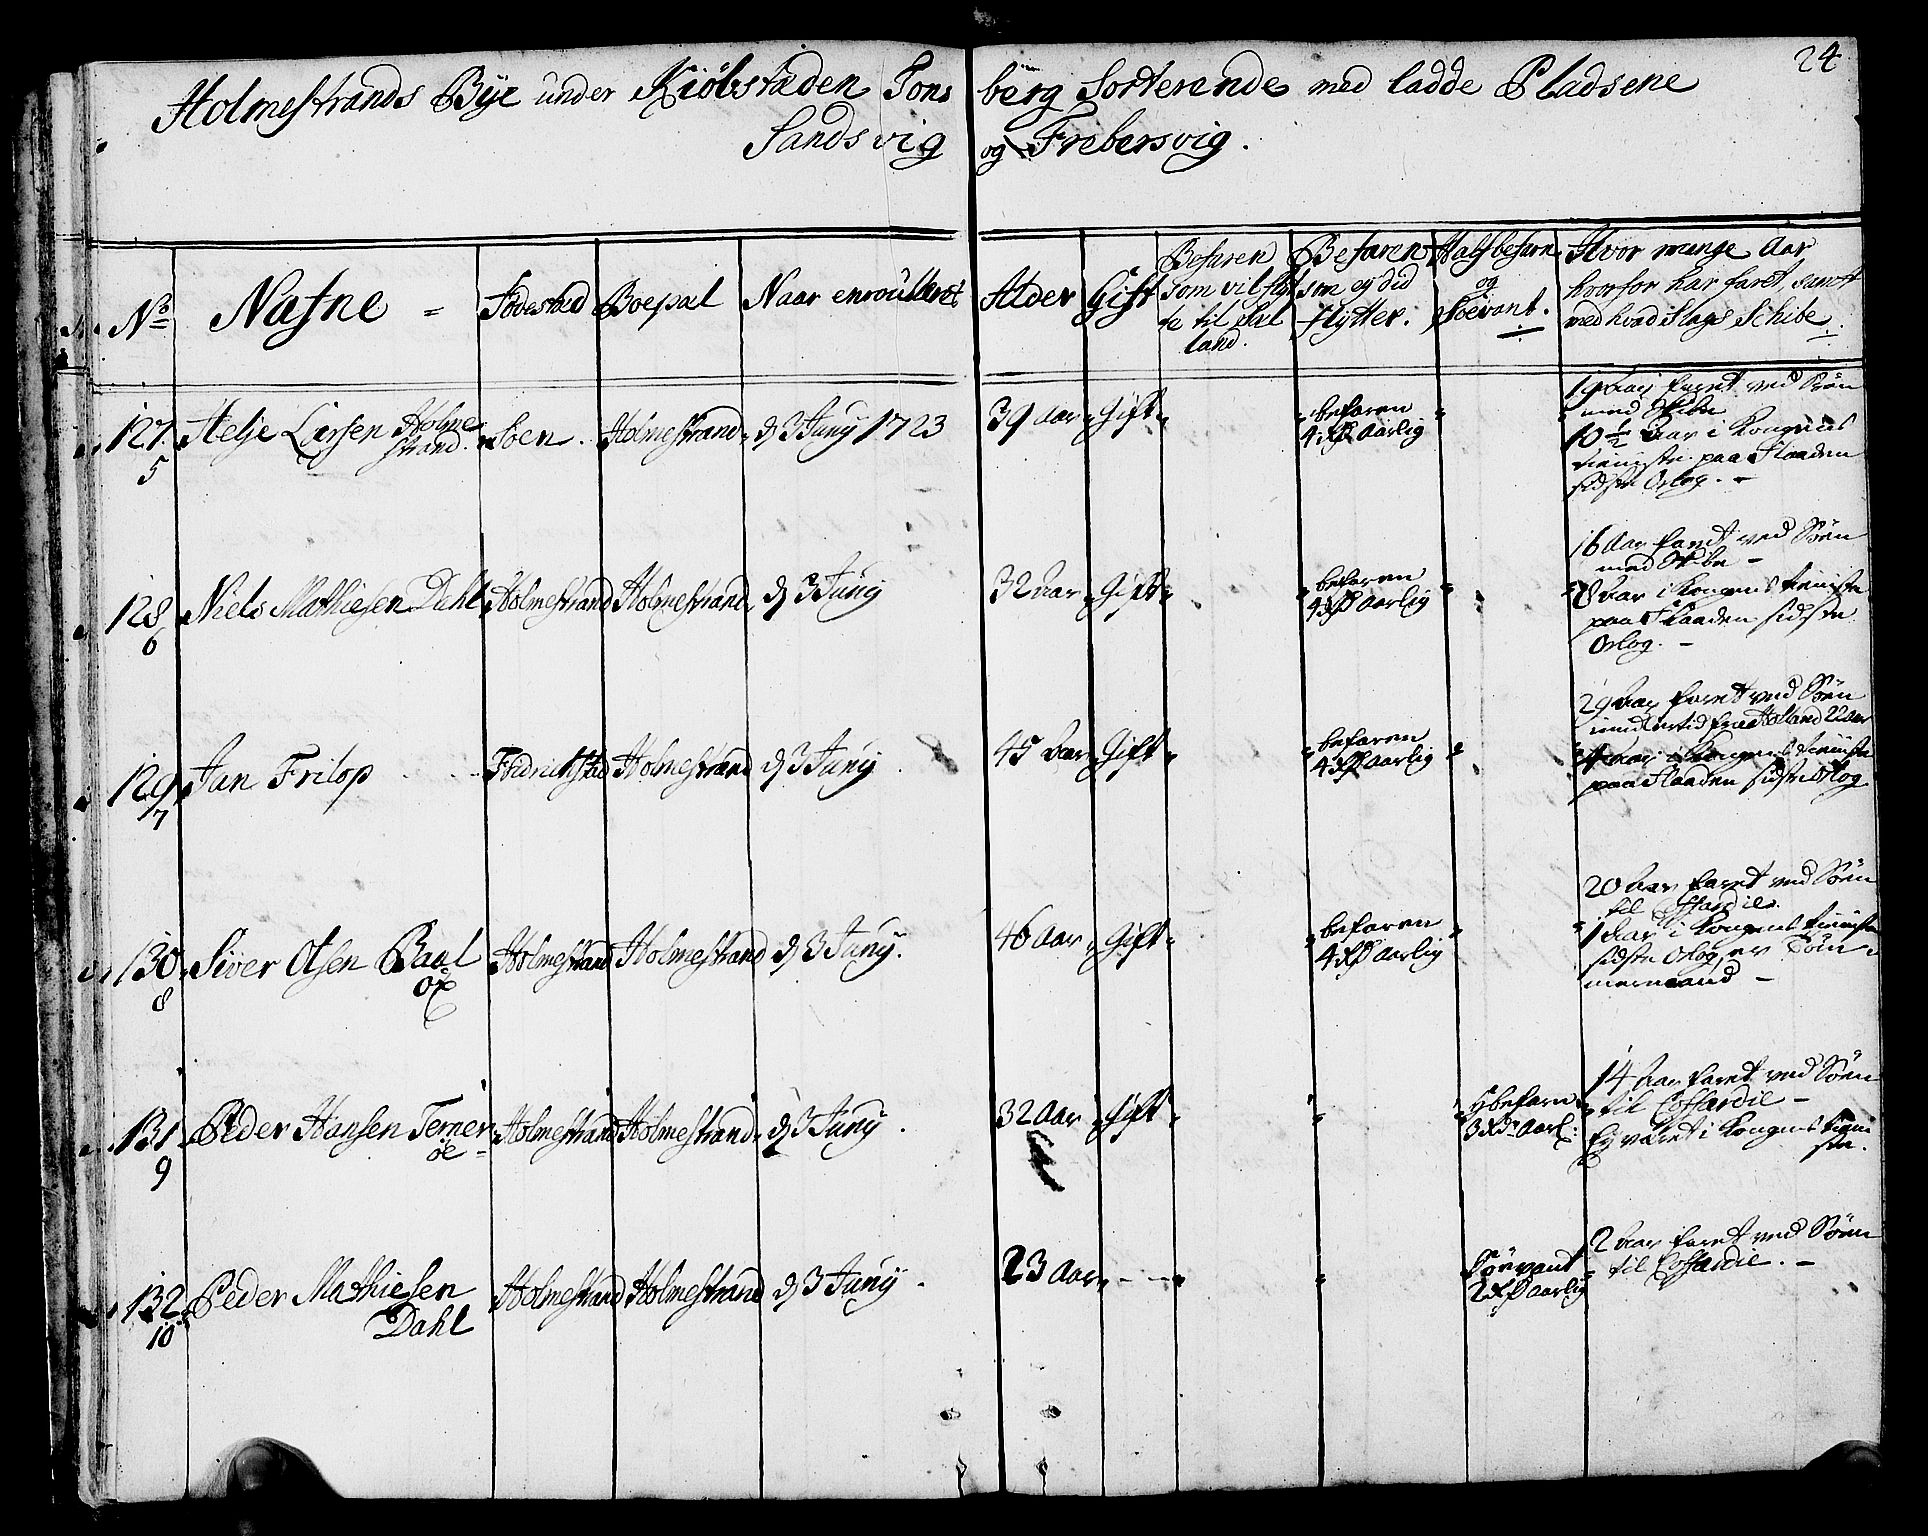 24
Holmestrands Bye under Kiöbstaden Tons berg Sorterende med ladde Pladsene
Sandsvig og Frebersvig.
No Nafne = Födestad Boepæl Naar enroulleret Alder Gift
Befaren som vil flÿt te til Siæl land.
Befaren som eÿ did flÿtter.
Halfbefarn og Söevant.
Hvor mange Aar hvorfor har faret, samt med hvad Slags Schibe
127 5 Helje Larsen Holme strand. Soen. Holmestrand d 3 Junÿ 1723 39 Aar Gift befaren 4 Aarlig
19 Aar faret ved Söen
med Skibe
10½ Aar i Kongens
tieniste paa Flaaden
sidste Orlog. -
128 6 Niels Mathiesen Dahl Holmestrand Holmestrand d 3 Junÿ 32 Aar Gift befaren 4 Aarlig
16 Aar faret ved Söen
med Skibe -
8 Aar i Kongens tieniste
paa Flaaden sidste
Orlog. -
129 7 Jan Frilop Fridrichstad Holmestrand d 3 Junÿ 45 Aar Gift befaren 4 Aarlig
29 Aar faret ved Söen
Holland
4 Aar i Kongens tieniste
paa Flaaden sidste Orlog
130 8 Siver Olsen Baal ox Holmestrand Holmestrand d 3 Junÿ. 46 Aar Gift befaren 4 Aarlig
20 Aar faret ved Söen
til Coffardie.
1 Aar i Kongens tieniste
sidste Orlog, er Töm
mermand -
131 9 Peder Hansen Terner öe Holmestrand Holmestrand d 3 Junÿ. 32 Aar Gift hbefarn 3 Aarl:
14 Aar faret ved Söen
til Coffardie -
Eÿ været i Kongens tieni
ste.
132 10 Peder Mathiesen Dahl Holmestrand Holmestrand d 3 Junÿ. 23 Aar - - - Söevant 2 Aarlig
2 Aar faret ved Söen
til Coffardie. -